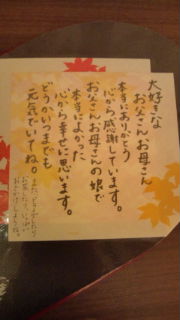 大好きな
お父さんお母さん
本当にありがとう
心から感謝しています。
お父さんお母さんの娘で
本当によかった
心から幸せに思います。
どうかいつまでも
元気でいてね。